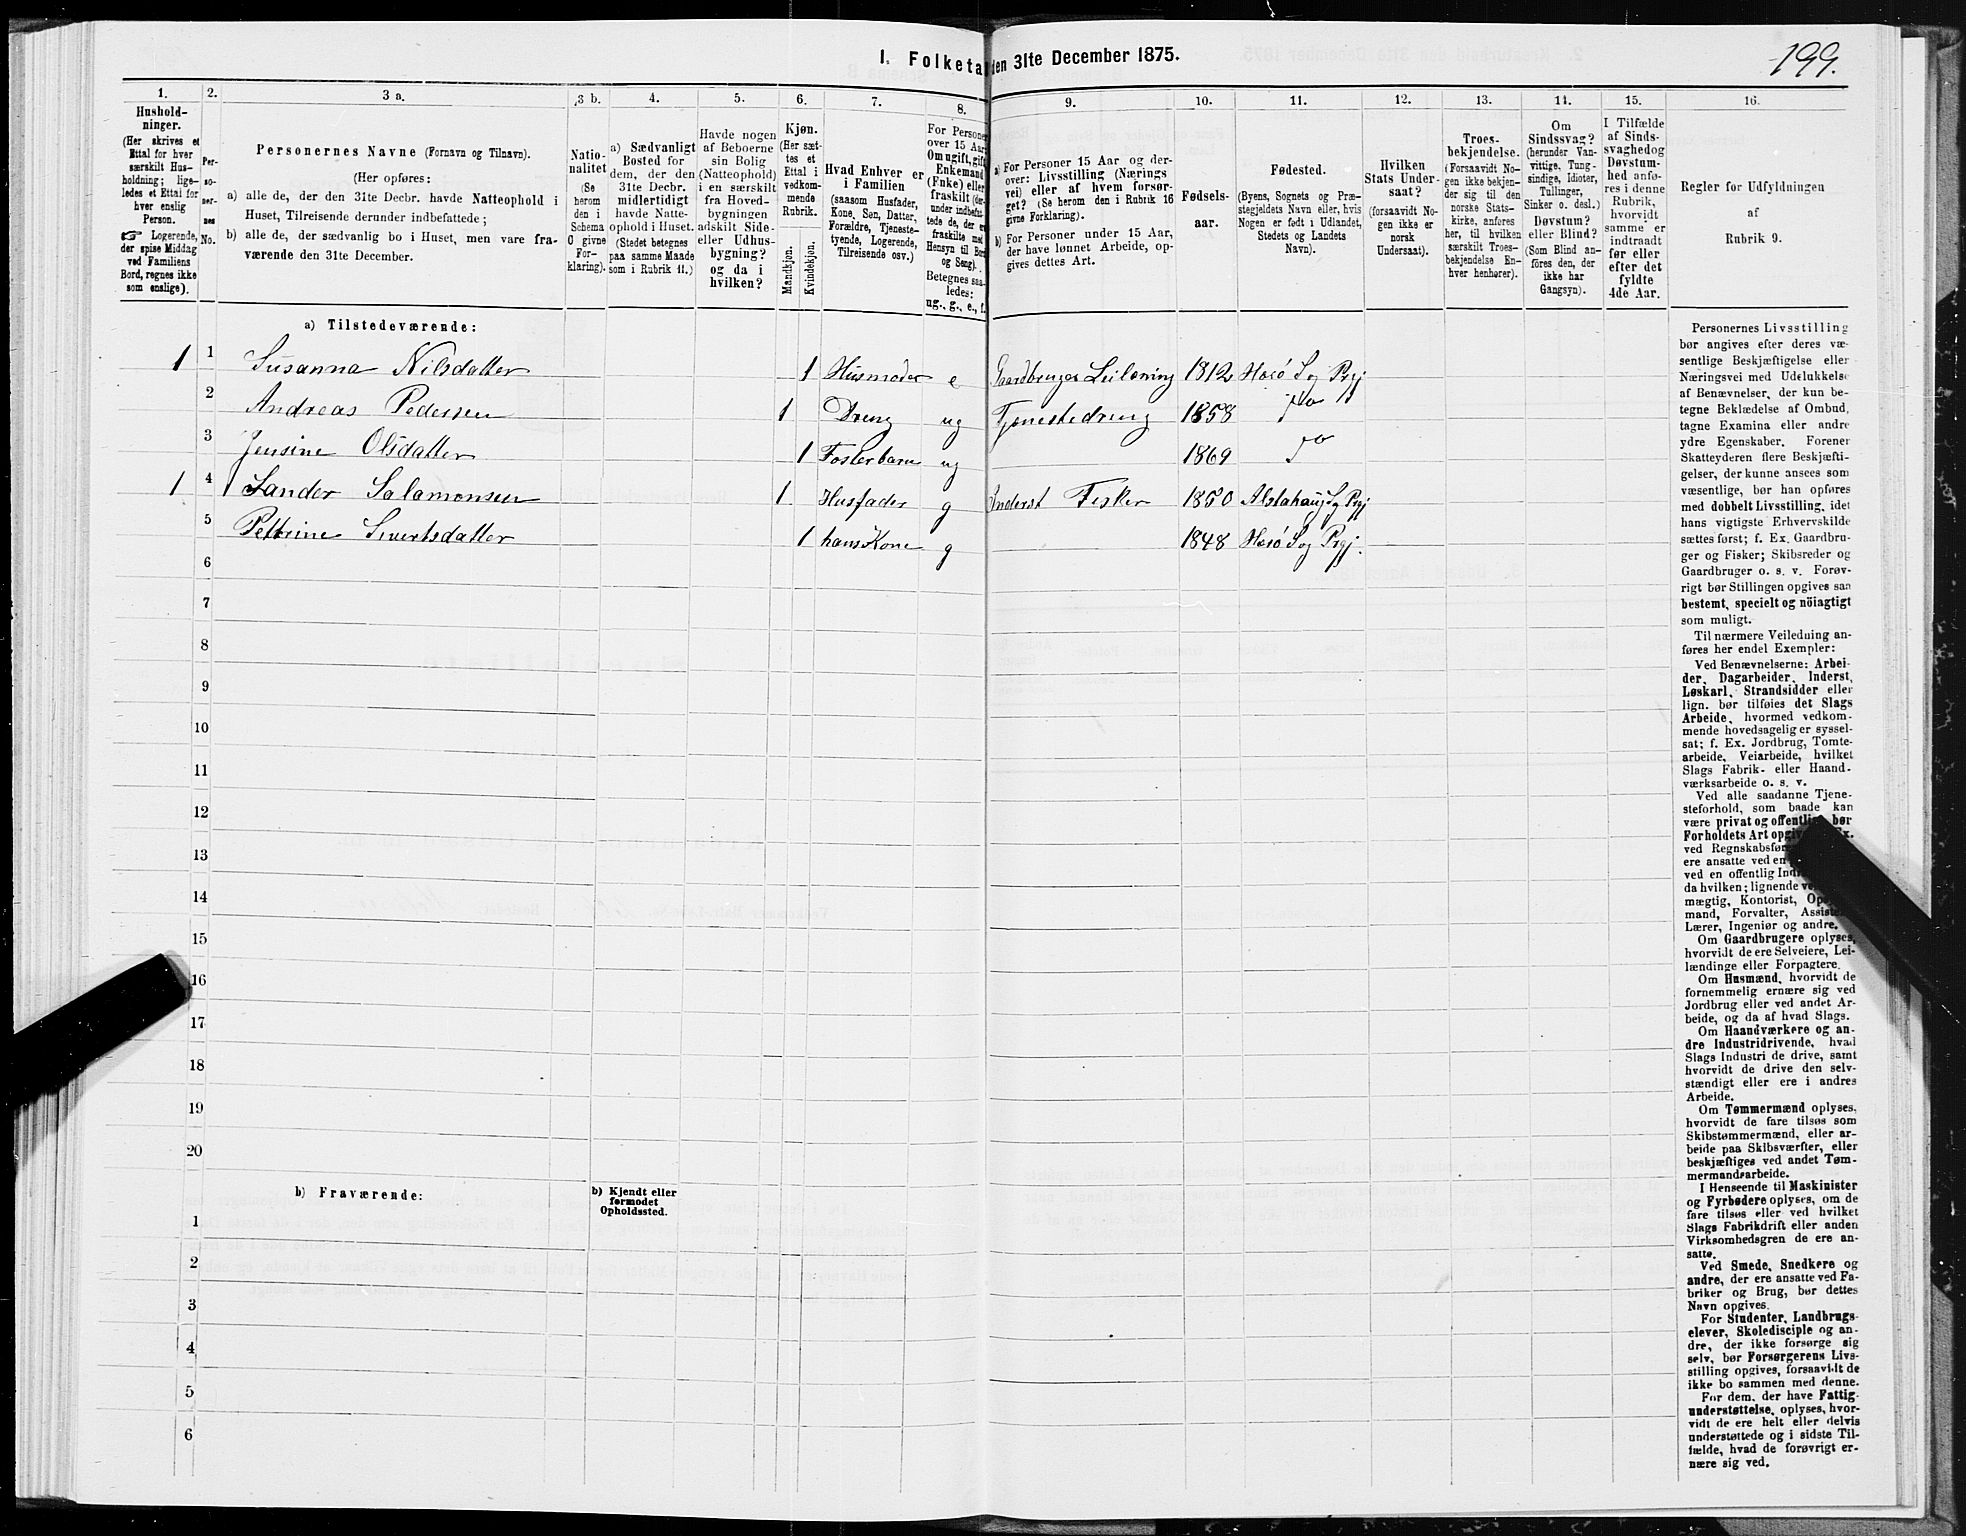 199.
I. Folketa den 31te December 1875.
1.
2.
3 a.
3 b.
4.
5.
6.
7.
8.
9.
10.
11.
12.
13.
14.
15.
16.
Hushold-
ninger.
(Her skrives et
Ettal for hver
særskilt Hus-
holdning; lige-
ledes et Ettal for
hver enslig
Person.
☞ Logerende,
der spise Middag
ved Familiens
Bord, regnes ikke
som enslige).
Per-
so-
ner-
nes
No.
Personernes Navne (Fornavn og Tilnavn).
(Her opføres:
a) alle de, der den 31te Decbr. havde Natteophold i
Huset, Tilreisende derunder indbefattede;
b) alle de, der sædvanlig bo i Huset, men vare fra-
værende den 31te December.
Natio-
nalitet
(Se
herom
den i
Schema
C givne
For-
klaring).
a) Sædvanligt
Bosted for
dem, der den
31te Decbr.
midlertidigt
havde Natte-
ophold i Huset.
(Stedet betegnes
paa samme Maade
som i Rubrik 11.)
Havde nogen
af Beboerne
sin Bolig
(Natteophold)
i en særskilt
fra Hoved-
bygningen
adskilt Side-
eller Udhus-
bygning?
og da i
hvilken?
Kjøn.
(Her sæt-
tes et
Ettal i
vedkom-
mende
Rubrik.
Mandkjøn.
Kvindekjøn.
Hvad Enhver er
i Familien
(saasom Husfader,
Kone, Søn, Datter,
Forældre, Tjeneste-
tyende, Logerende,
Tilreisende osv.)
For Personer
over 15 Aar:
Om ugift, gift,
Enkemand
(Enke) eller
fraskilt (der-
under indbefat-
tede de, der er
fraskilte med
Hensyn til Bord
og Seng).
Betegnes saa-
ledes:
ug., g., e., f.
a) For Personer 15 Aar og der-
over: Livsstilling (Nærings
vei) eller af hvem forsør-
get? (Se herom den i Rubrik 16
givne Forklaring).
b) For Personer under 15 Aar,
der have lønnet Arbeide, op-
gives dettes Art.
Fødsels-
aar.
Fødested.
(Byens, Sognets og Præ-
stegjeldets Navn eller, hvis
Nogen er født i Udlandet,
Stedets og Landets
Navn).
Hvilken
Stats Under-
saat?
(forsaavidt No-
gen ikke er
norsk
Undersaat).
Troes-
bekjendelse.
(Forsaavidt No-
gen ikke bekjen-
der sig til den
norske Stats-
kirke, anføres
her, til hvilken
særskilt Troes-
bekjendelse En-
hver henhører).
Om
Sindssvag?
(herunder Van-
vittige, Tung-
sindige, Idioter,
Tullinger,
Sinker o. desl.)
Døvstum?
eller Blind?
(Som Blind an-
føres den, der
ikke har
Gangsyn).
I Tilfælde
af Sinds-
svaghed og
Døvstum-
hed anfø-
res i denne
Rubrik,
hvorvidt
samme er
indtraadt
før eller
efter det
fyldte
4de Aar.
Regler for Udfyldningen
af
Rubrik 9.
a) Tilstedeværende:
1 1 Susanna Nilsdatter 1 Husmoder e Gaardbruger Leilening 1812 Herø S og Prgj
2 Andreas Pedersen 1 Dreng ug Tjenestedreng 1858 do
3 Jensine Olsdatter 1 Fosterbarn ug 1869 do
1 4 Sander Salamonsen 1 Husfader g Inderst Fisker 1850 Alstahaug S og Prgj
5 Pettrine Sivertsdatter 1 hans Kone g 1848 Herø S og Prgj.
6
7
8
9
10
11
12
13
14
15
16
17
18
19
20
b) Fraværende:
b) Kjendt eller
formodet
Opholdssted.
1
2
3
4
5
6
Personernes Livsstilling
bør angives efter deres væ-
sentlige Beskjæftigelse eller
Næringsvei med Udelukkelse
af Benævnelser, der kun be-
tegne Beklædelse af Ombud,
tagne Examina eller andre
ydre Egenskaber. Forener
Skatteyderen flere Beskjæfti-
gelser, der kunne ansees som
væsentlige, bør han opføres
med dobbelt Livsstilling, idet
hans vigtigste Erhvervskilde
sættes først; f. Ex. Gaardbru-
ger og Fisker; Skibsreder og
Gaardbruger o. s. v. Forøv-
rigt bør Stillingen opgives saa
bestemt, specielt og nöiagtigt
som muligt.
Til nærmere Veiledning an-
føres her endel Exempler:
Ved Benævnelserne: Arbei-
der, Dagarbeider, Inderst,
Løskarl, Strandsidder eller
lign. bør tilføies det Slags
Arbeide, hvormed vedkom-
mende hovedsagelig er syssel-
sat; f. Ex. Jordbrug, Tomte-
arbeide, Veiarbeide, hvilket
Slags Fabrik- eller Haand-
værksarbeide o. s. v.
Ved alle saadanne Tjene-
steforhold, som baade kan
være privat og offentlig, bør
Forholdets Art
ved Regnskabsfør
ere ansatte ved en
ved en offentlig
da hvilken; lignende
mægtig, Kontorist,
mand, Forvalter,
Lærer, Ingeniør og andre.
Om Gaardbrugere oplyses,
hvorvidt de ere Selveiere, Lei-
lændinge eller Forpagtere.
Om Husmænd, hvorvidt de
fornemmelig ernære sig ved
Jordbrug eller ved andet Ar-
beide, og da af hvad Slags.
Om Haandværkere og an-
dre Industridrivende, hvad
Slags Industri de drive, samt
hvorvidt de drive den selv-
stændigt eller ere i andres
Arbeide.
Om Tømmermænd oplyses,
hvorvidt de fare tilsøs som
Skibstømmermænd, eller ar-
beide paa Skibsværfter, eller
beskjæftiges ved andet Tøm-
mermandsarbeide.
I Henseende til Maskinister
og Fyrbødere oplyses, om de
fare tilsøs eller ved hvilket
Slags Fabrikdrift eller anden
Virksomhedsgren de ere an-
satte.
Ved Smede, Snedkere og
andre, der ere ansatte ved Fa-
briker og Brug, bør dettes
Navn opgives.
For Studenter, Landbrugs-
elever, Skoledisciple og an-
dre, der ikke forsørge sig
selv, bør Forsørgerens Livs-
stilling opgives, forsaavidt de
ikke bo sammen med denne.
For dem, der have Fattig-
understøttelse, oplyses, hvor-
vidt de ere helt eller delvis
understøttede og i sidste Til-
fælde, hvad de forøvrigt er-
nære sig ved.